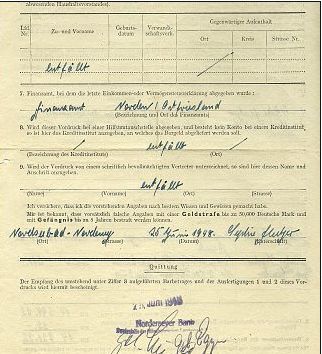 abwesenden Haushaltsvorstandes).
Lfd. Nr.
Zu- und Vorname
Geburts-datum
Verwandt-schaftsverh.
Gegenwärtiger Aufenthalt
Ort
Kreis
Strasse Nr.
entfällt
7. Finanzamt, bei dem die letzte Einkommen- oder Vermögenserklärung abgegeben wurde:
Finanzamt Norden / Ostfriesland
(Bezeichnung und Ort des Finanzamts)
8. Wird dieser Vordruck bei einer Hilfsumtauschstelle abgegeben, und besteht kein Konto bei einem Kreditinstitut,
so ist hier das Kreditinstitut anzugeben, an welches das Bargeld abgeliefert werden soll.
entfällt
(Bezeichnung des Kreditinstituts)
(Ort)
9. Wird der Vordruck von einem schriftlich bevollmächtigten Vertreter unterzeichnet, so sind hier dessen Namen und
Anschrift anzugeben.
entfällt
(Name)
(Vorname)
(Ort)
(Strasse Nr.)
Ich versichere, dass ich die vorstehenden Angaben nach bestem Wissen und Gewissen gemacht habe.
Mir ist bekannt, dass vorsätzlich falsche Angaben mit einer Geldstrafe bis zu 50,000 Deutsche Mark und
mit Gefängnis bis zu 5 Jahren bestraft werden können.
Nordseebad-Norderney 26 Juni 1948.
(Ort)
(Datum)
(Unterschrift)
Quittung
Der Empfang des umstehend unter Ziffer 3 aufgeführten Barbetrages und der Ausfertigungen 1 und 2 dieses Vor-
drucks wird hiermit bescheinigt.
JUNI 1948
Norderneyer Bank